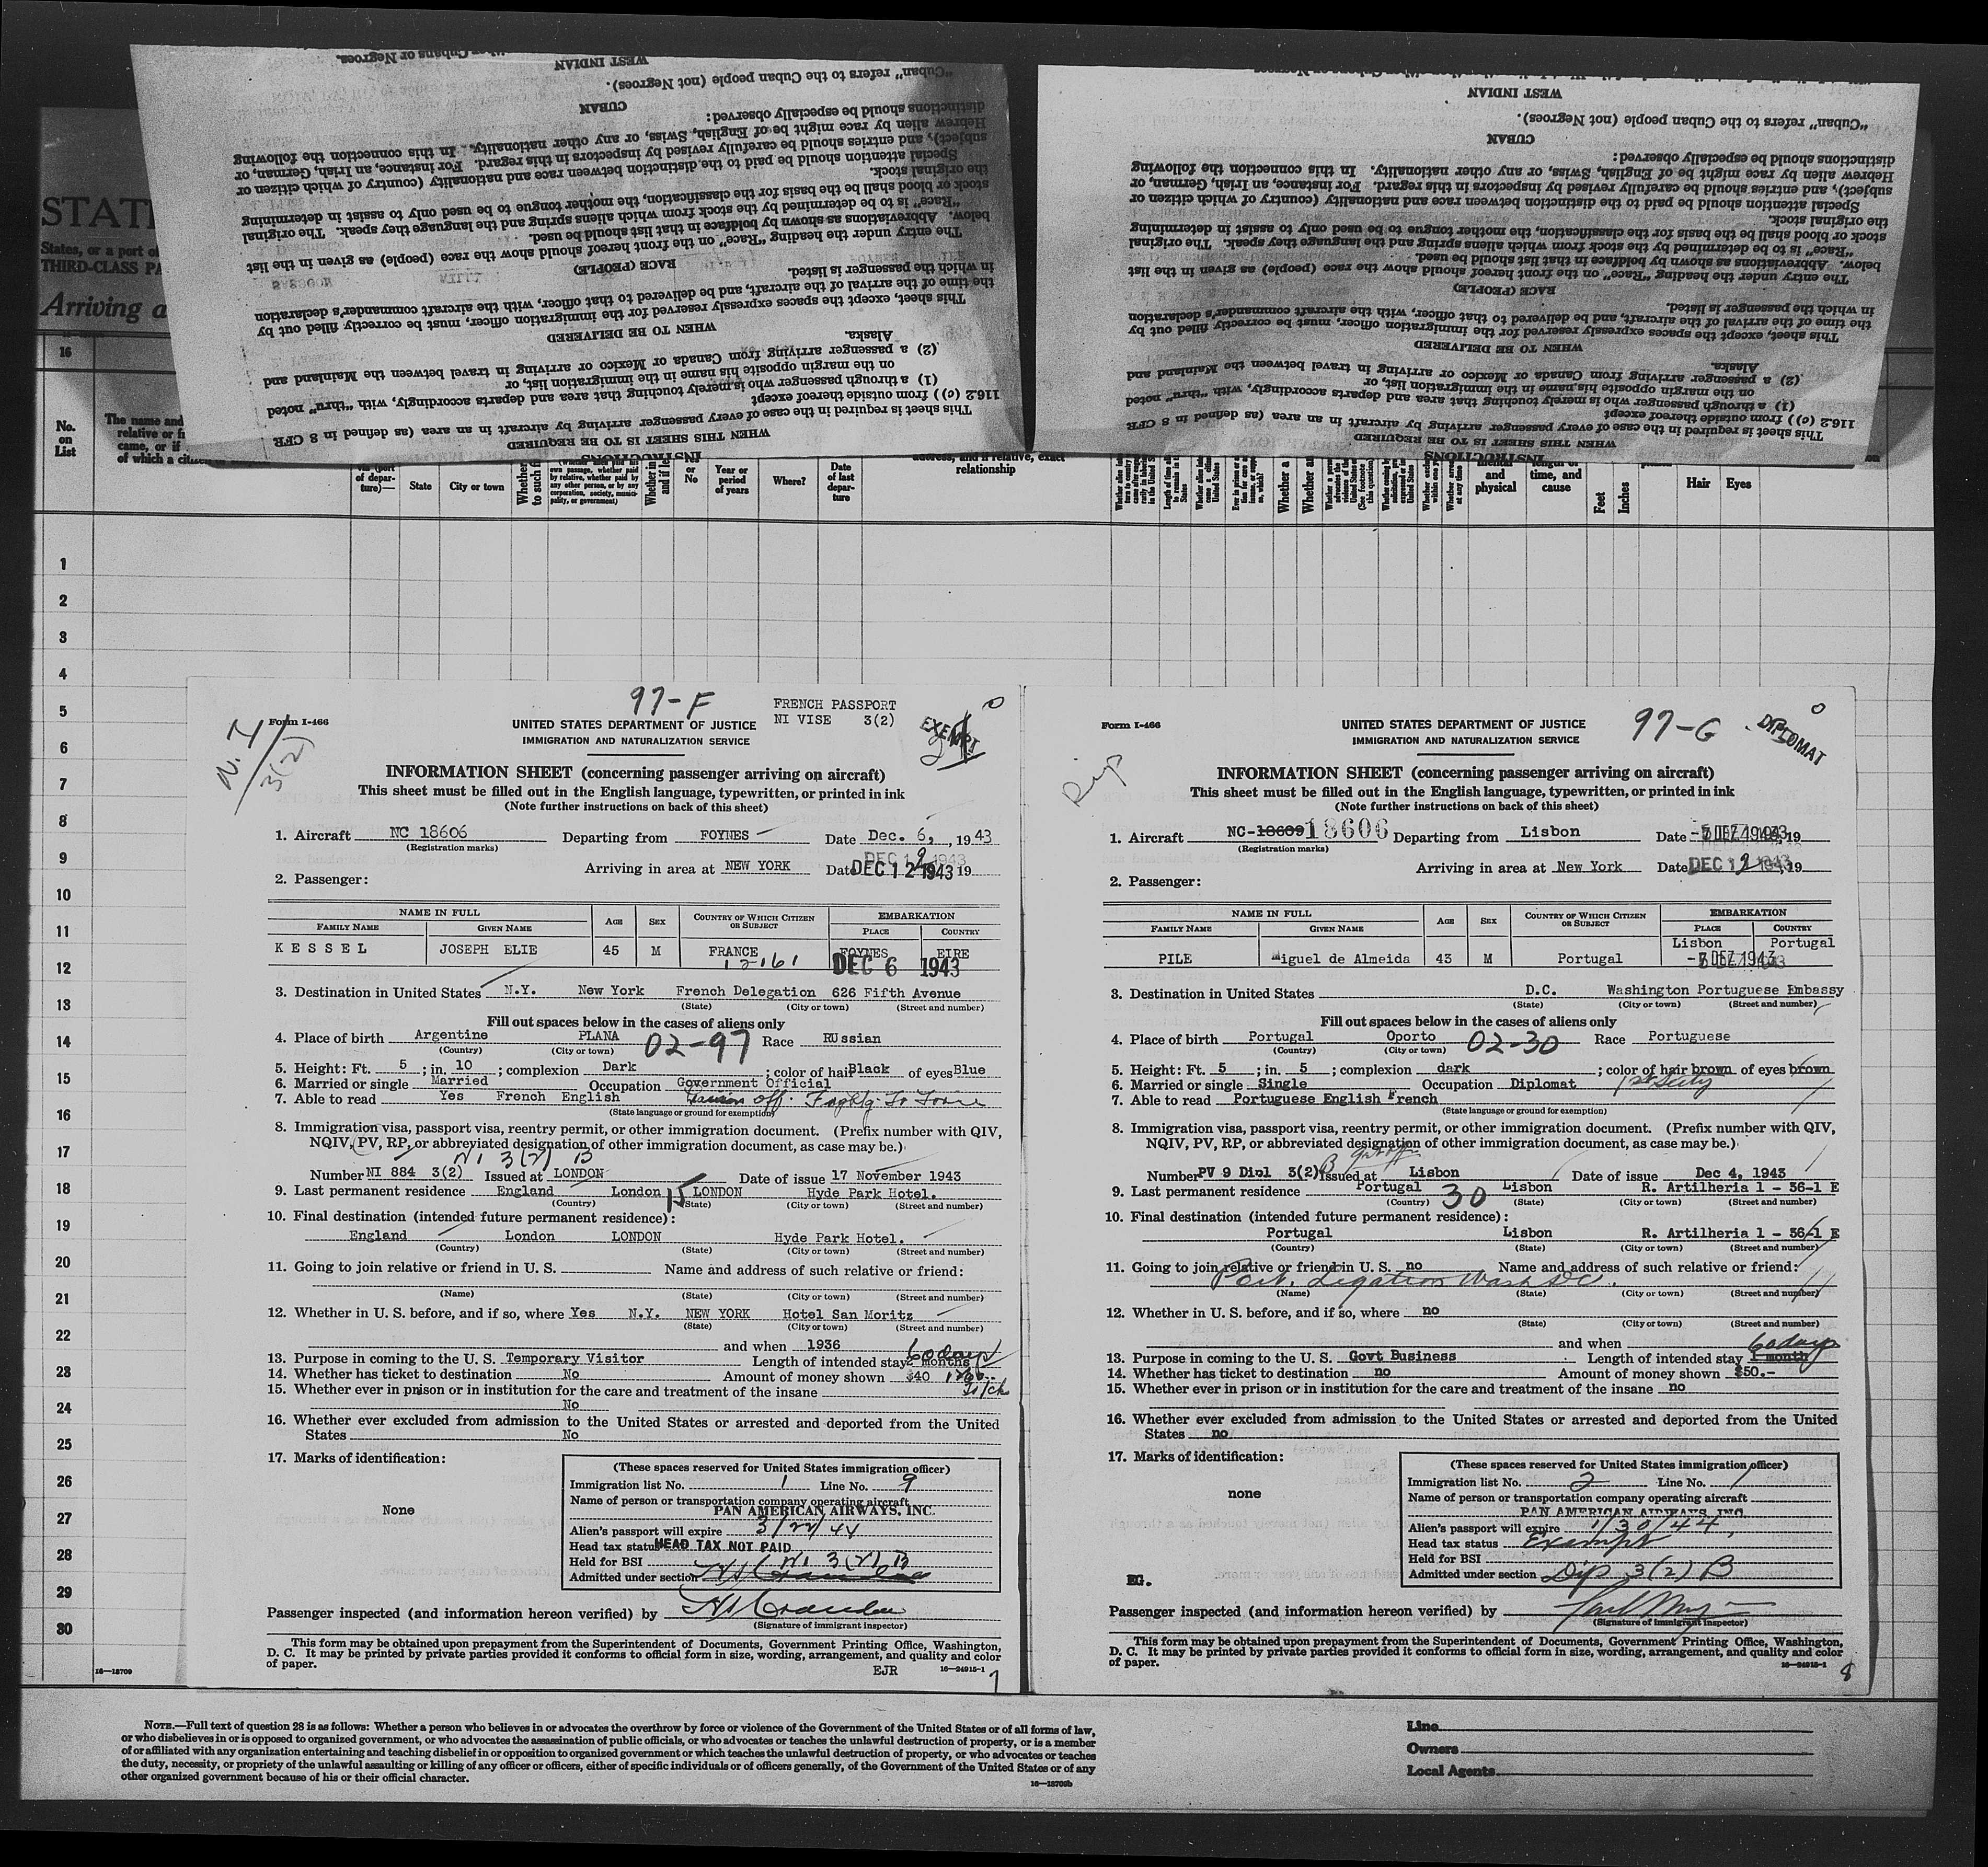 STAT
States, or a port of
THIRD-CLASS PA
Arriving a
WEST INDIAN
"Cuban" refers to the Cuban people (not Negroes).
CUBAN
distinctions should be especially observed:
Hebrew alien by race might be of English, Swiss, or any other nationality. In this connection the following
subject), and entries should be carefully revised by inspectors in this regard. For instance, an Irish, German, or
Special attention should be paid to the distinction between race and nationality (country of which citizen or
the original stock.
stock or blood shall be the basis for the classification, the mother tongue to be used only to assist in determining
"Race" is to be determined by the stock from which aliens spring and the language they speak. The original
below. Abbreviations as shown by boldface in that list should be used.
The entry under the heading "Race" on the front hereof should show the race (people) as given in the list
RACE (PEOPLE)
in which the passenger is listed.
the time of the arrival of the aircraft, and be delivered to that officer, with the aircraft commander's declaration
This sheet, except the spaces expressly reserved for the immigration officer, must be correctly filled out by
WHEN TO BE DELIVERED
Alaska.
(2) a passenger arriving from Canada or Mexico or arriving in travel between the Mainland and
on the margin opposite his name in the immigration list, or
(1) a through passenger who is merely touching that area and departs accordingly, with "thru" noted
116.2 (c)) from outside thereof except
This sheet is required in the case of every passenger arriving by aircraft in an area (as defined in 8 CFR
WHEN THIS SHEET IS TO BE REQUIRED
INSTRUCTIONS
WEST INDIAN
"Cuban" refers to the Cuban people (not Negroes).
CUBAN
distinctions should be especially observed:
Hebrew alien by race might be of English, Swiss, or any other nationality. In this connection the following
subject), and entries should be carefully revised by inspectors in this regard. For instance, an Irish, German, or
Special attention should be paid to the distinction between race and nationality (country of which citizen or
the original stock.
stock or blood shall be the basis for the classification, the mother tongue to be used only to assist in determining
"Race" is to be determined by the stock from which aliens spring and the language they speak. The original
below. Abbreviations as shown by boldface in that list should be used.
The entry under the heading "Race" on the front hereof should show the race (people) as given in the list
RACE (PEOPLE)
in which the passenger is listed.
the time of the arrival of the aircraft, and be delivered to that officer, with the aircraft commander's declaration
This sheet, except the spaces expressly reserved for the immigration officer, must be correctly filled out by
WHEN TO BE DELIVERED
Alaska.
(2) a passenger arriving from Canada or Mexico or arriving in travel between the Mainland and
on the margin opposite his name in the immigration list, or
(1) a through passenger who is merely touching that area and departs accordingly, with "thru" noted
116.2 (c)) from outside thereof except
This sheet is required in the case of every passenger arriving by aircraft in an area (as defined in 8 CFR
WHEN THIS SHEET IS TO BE REQUIRED
INSTRUCTIONS
16
No. on List
The name and
relative or fr
came, or if
of which a citi
State City or town Year or period of years Where? Date of last departure relationship Feet Inches Hair Eyes
1
2
3
4
5
6
7
8
9
10
11
12
13
14
15
16
17
18
19
20
21
22
23
24
25
26
27
28
29
30
97-F
FRENCH PASSPORT
NI VISE 3(2)
EXEMPT
N.I 3(2)
Form I-466
UNITED STATES DEPARTMENT OF JUSTICE
IMMIGRATION AND NATURALIZATION SERVICE
INFORMATION SHEET (concerning passenger arriving on aircraft)
This sheet must be filled out in the English language, typewritten, or printed in ink
(Note further instructions on back of this sheet)
1. Aircraft NC 18606 Departing from FOYNES Date Dec. 6, 1943
(Registration marks)
Arriving in area at NEW YORK Date DEC 12 1943 19
2. Passenger:
NAME IN FULL AGE SEX COUNTRY OF WHICH CITIZEN OR SUBJECT EMBARKATION
FAMILY NAME GIVEN NAME PLACE COUNTRY
KESSEL JOSEPH ELIE 45 M FRANCE FOYNES EIRE
DEC 6 1943
3. Destination in United States N.Y. New York French Delegation 626 Fifth Avenue
(State) (City or town) (Street and number)
Fill out spaces below in the cases of aliens only
4. Place of birth Argentine PLANA 02-97 Race RUssian
(Country) (City or town)
5. Height: Ft. 5 ; in. 10 ; complexion Dark ; color of hair Black of eyes Blue
6. Married or single Married Occupation Government Official
7. Able to read Yes French English
(State language or ground for exemption)
8. Immigration visa, passport visa, reentry permit, or other immigration document. (Prefix number with QIV,
NQIV, PV, RP, or abbreviated designation of other immigration document, as case may be.)
NI 3(2) B
Number NI 884 3(2) Issued at LONDON Date of issue 17 November 1943
9. Last permanent residence England London 15 LONDON Hyde Park Hotel.
(Country) (State) (City or town) (Street and number)
10. Final destination (intended future permanent residence):
England London LONDON Hyde Park Hotel.
(Country) (State) (City or town) (Street and number)
11. Going to join relative or friend in U. S. Name and address of such relative or friend:
(Name) (State) (City or town) (Street and number)
12. Whether in U. S. before, and if so, where Yes N.Y. NEW YORK Hotel San Moritz
(State) (City or town) (Street and number)
and when 1936
13. Purpose in coming to the U. S. Temporary Visitor Length of intended stay 2 months 60 days
14. Whether has ticket to destination No Amount of money shown $40
15. Whether ever in prison or in institution for the care and treatment of the insane
No
16. Whether ever excluded from admission to the United States or arrested and deported from the United
States No
17. Marks of identification:
None
(These spaces reserved for United States immigration officer)
Immigration list No. 1 Line No. 9
Name of person or transportation company operating aircraft
PAN AMERICAN AIRWAYS, INC.
Alien's passport will expire 3/22/44
Head tax status HEAD TAX NOT PAID
Held for BSI NI 3(2) B
Admitted under section
Passenger inspected (and information hereon verified) by
(Signature of immigrant inspector)
This form may be obtained upon prepayment from the Superintendent of Documents, Government Printing Office, Washington,
D. C. It may be printed by private parties provided it conforms to official form in size, wording, arrangement, and quality and color
of paper.
EJR 16—24915-1
7
97-G
DIPLOMAT
Dip
Form I-466
UNITED STATES DEPARTMENT OF JUSTICE
IMMIGRATION AND NATURALIZATION SERVICE
INFORMATION SHEET (concerning passenger arriving on aircraft)
This sheet must be filled out in the English language, typewritten, or printed in ink
(Note further instructions on back of this sheet)
1. Aircraft NC-18609 18606 Departing from Lisbon Date -5 DEZ 1943, 19
(Registration marks)
Arriving in area at New York Date DEC 12 1943, 19
2. Passenger:
NAME IN FULL AGE SEX COUNTRY OF WHICH CITIZEN OR SUBJECT EMBARKATION
FAMILY NAME GIVEN NAME PLACE COUNTRY
Lisbon Portugal
PILE Miguel de Almeida 43 M Portugal DEZ 1943
3. Destination in United States D.C. Washington Portuguese Embassy
(State) (City or town) (Street and number)
Fill out spaces below in the cases of aliens only
4. Place of birth Portugal Oporto 02-30 Race Portuguese
(Country) (City or town)
5. Height: Ft. 5 ; in. 5 ; complexion dark ; color of hair brown of eyes brown
6. Married or single Single Occupation Diplomat
7. Able to read Portuguese English French
(State language or ground for exemption)
8. Immigration visa, passport visa, reentry permit, or other immigration document. (Prefix number with QIV,
NQIV, PV, RP, or abbreviated designation of other immigration document, as case may be.)
Number PV 9 Dipl 3(2) B Issued at Lisbon Date of issue Dec 4, 1943
9. Last permanent residence Portugal 30 Lisbon R. Artilheria 1 - 36-1 E
(Country) (State) (City or town) (Street and number)
10. Final destination (intended future permanent residence):
Portugal Lisbon R. Artilheria 1 - 36-1 E
(Country) (State) (City or town) (Street and number)
11. Going to join relative or friend in U. S. no Name and address of such relative or friend:
Port. Legation Wash DC.
(Name) (State) (City or town) (Street and number)
12. Whether in U. S. before, and if so, where no
(State) (City or town) (Street and number)
and when
13. Purpose in coming to the U. S. Govt Business Length of intended stay 1 month 60 days
14. Whether has ticket to destination no Amount of money shown $50.-
15. Whether ever in prison or in institution for the care and treatment of the insane no
16. Whether ever excluded from admission to the United States or arrested and deported from the United
States no
17. Marks of identification:
none
EG.
(These spaces reserved for United States immigration officer)
Immigration list No. 2 Line No. 1
Name of person or transportation company operating aircraft
PAN AMERICAN AIRWAYS, INC.
Alien's passport will expire 1/30/44
Head tax status Exempt
Held for BSI
Admitted under section Dip 3(2) B
Passenger inspected (and information hereon verified) by
(Signature of immigrant inspector)
This form may be obtained upon prepayment from the Superintendent of Documents, Government Printing Office, Washington,
D. C. It may be printed by private parties provided it conforms to official form in size, wording, arrangement, and quality and color
of paper.
16—24915-1
8
16—18709
NOTE.—Full text of question 28 is as follows: Whether a person who believes in or advocates the overthrow by force or violence of the Government of the United States or of all forms of law,
or who disbelieves in or is opposed to organized government, or who advocates the assassination of public officials, or who advocates or teaches the unlawful destruction of property, or is a member
of or affiliated with any organization entertaining and teaching disbelief in or opposition to organized government or which teaches the unlawful destruction of property, or who advocates or teaches
the duty, necessity, or propriety of the unlawful assaulting or killing of any officer or officers, either of specific individuals or of officers generally, of the Government of the United States or of any
other organized government because of his or their official character.
16—18709b
Line
Owners
Local Agents